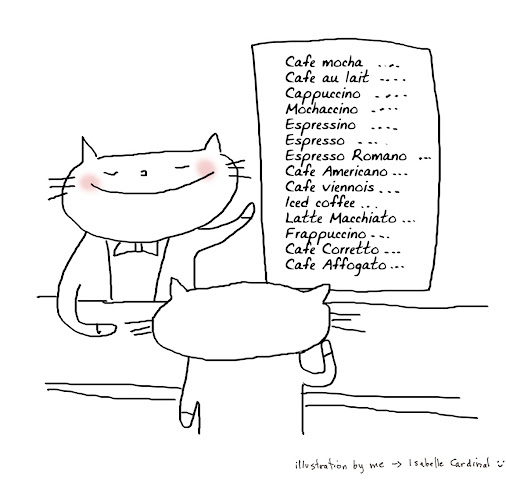 Cafe mocha ....
Cafe au lait ....
Cappuccino ....
Mochaccino ....
Espressino ....
Espresso ....
Espresso Romano ...
Cafe Americano ...
Cafe viennois ...
Iced coffee ...
Latte Macchiato ...
Frappuccino ...
Cafe Corretto ...
Cafe Affogato ...
illustration by me → Isabelle Cardinal :)